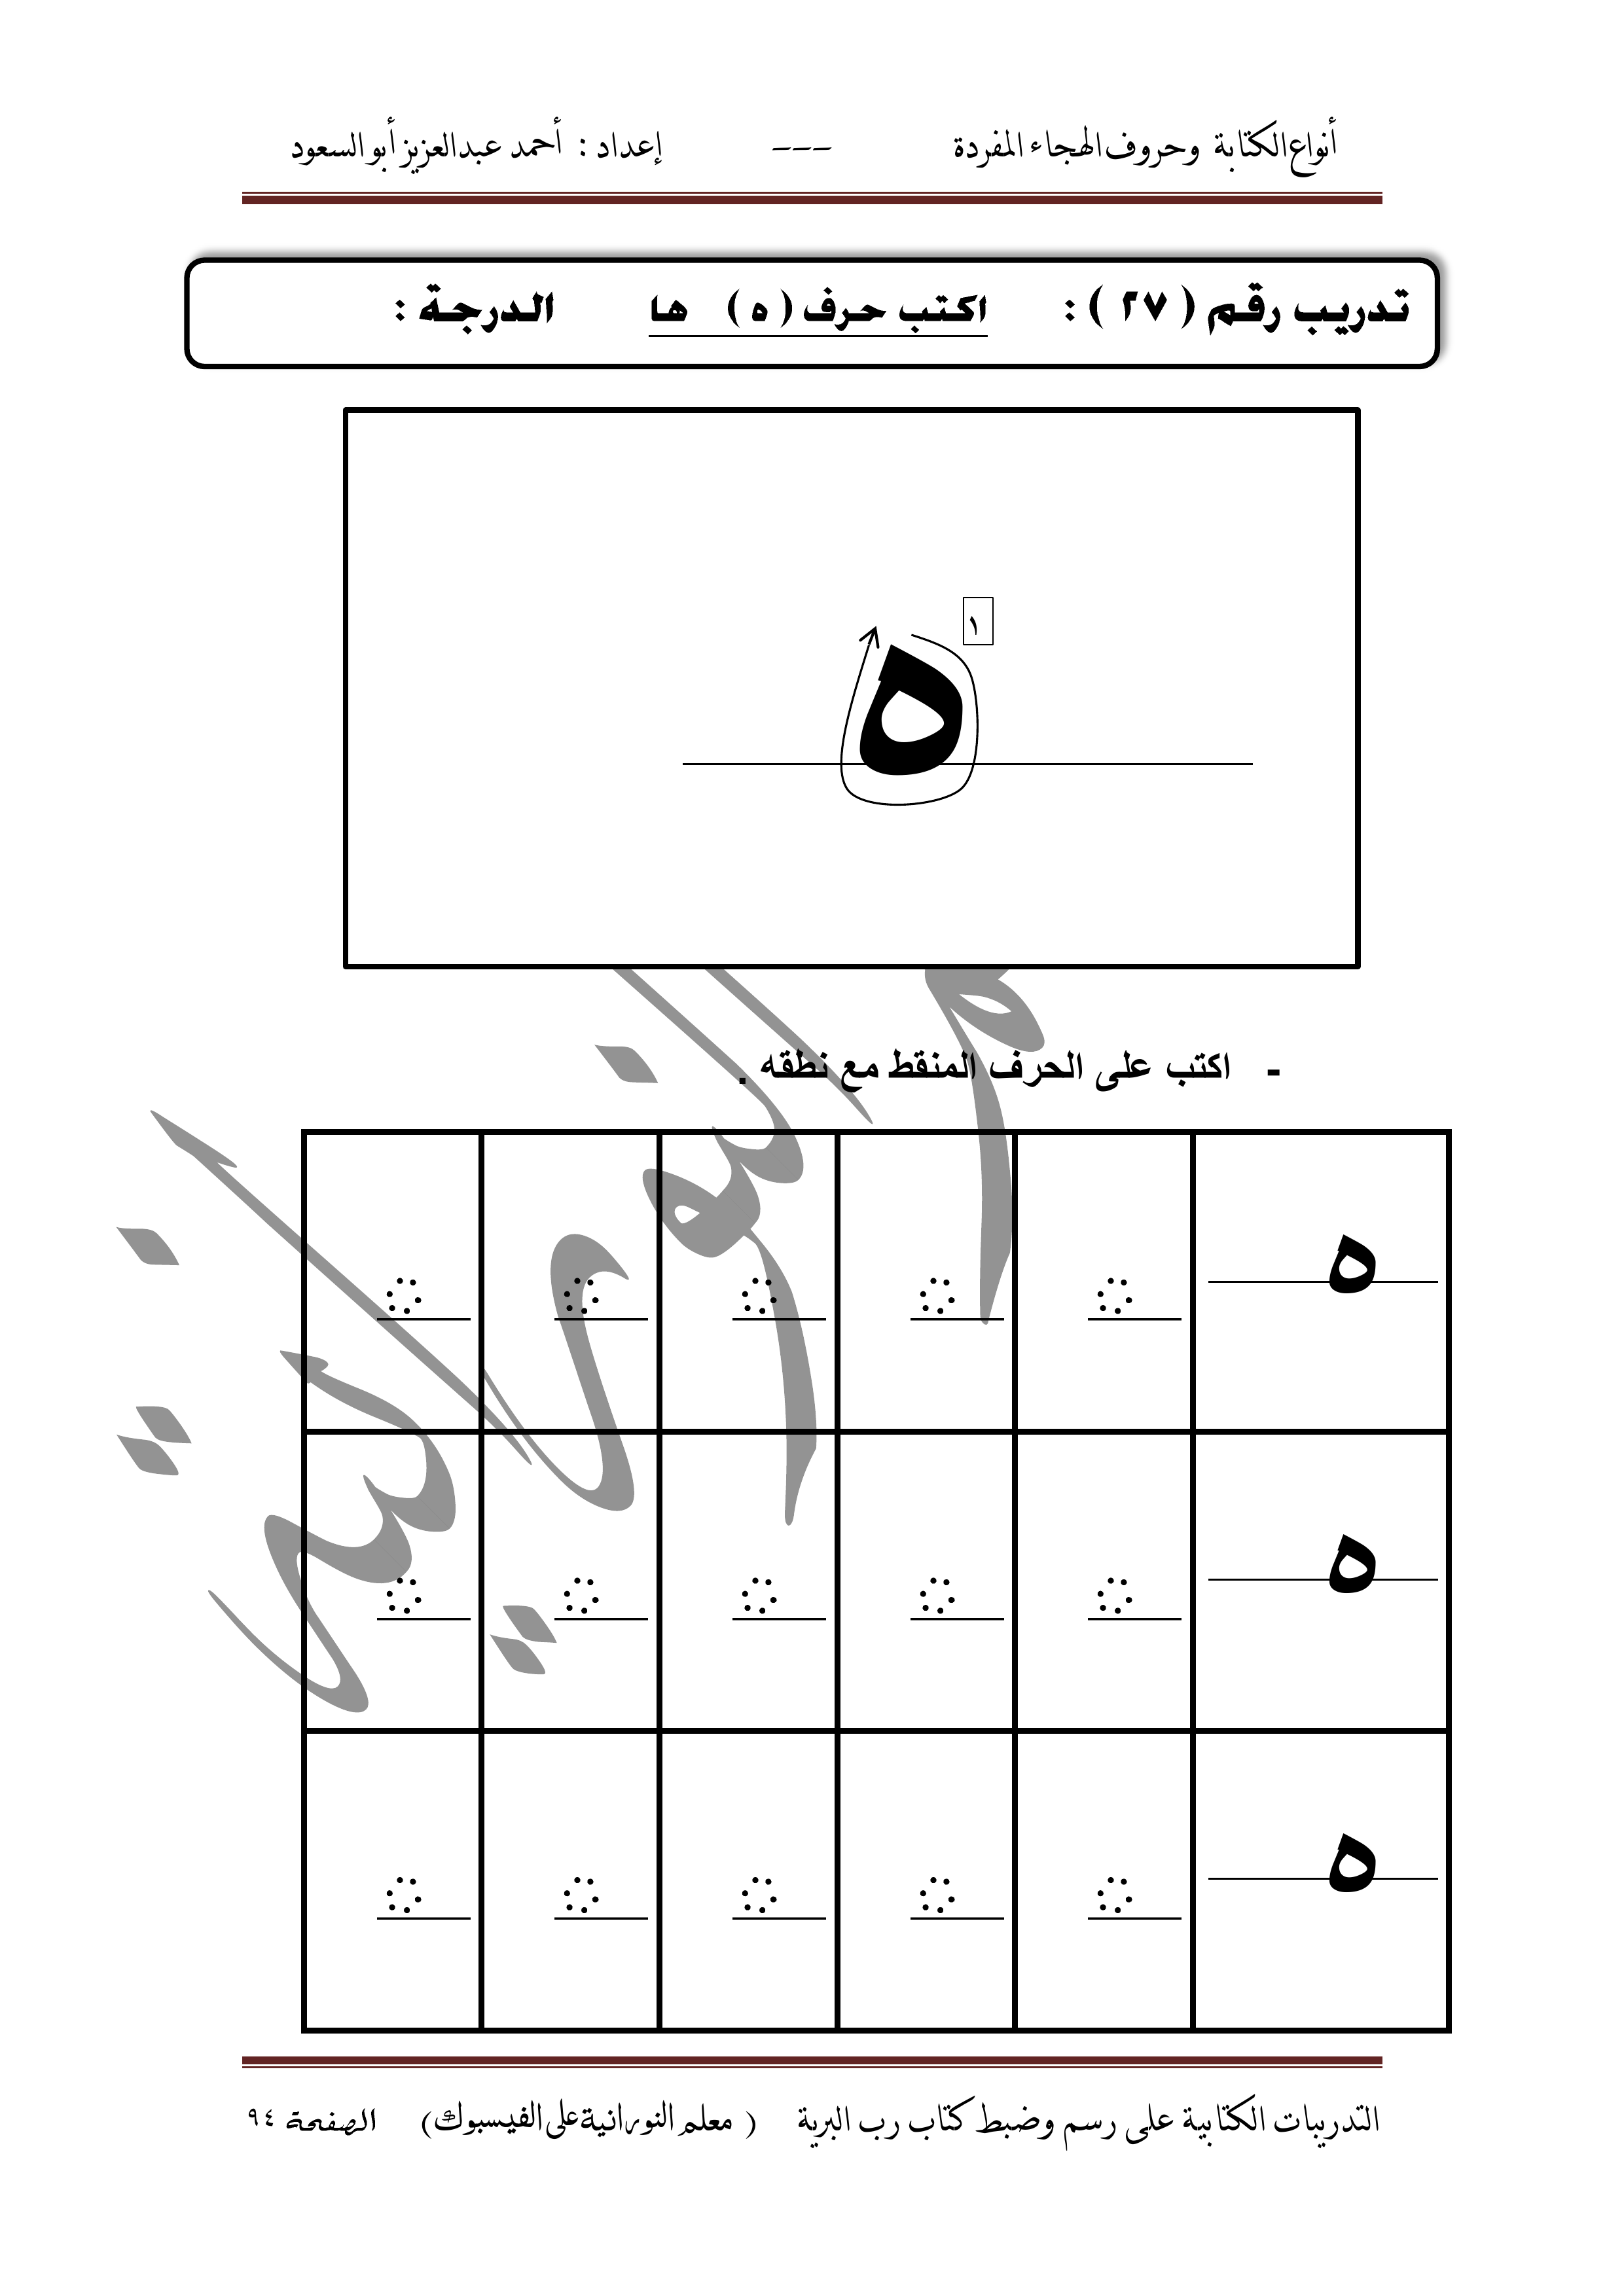 أنواع الكتابة وحروف الهجاء المفردة --- إعداد : أحمد عبدالعزيز أبو السعود
تدريب رقم ( ٢٧ ) : اكتب حرف ( ه ) ها الدرجة :
١
ه
- اكتب على الحرف المنقط مع نطقه .
ه ه ه ه ه ه
ه ه ه ه ه ه
ه ه ه ه ه ه
التدريبات الكتابية على رسم وضبط كتاب رب البرية ( معلم النورانية على الفيسبوك) الصفحة ٩٤